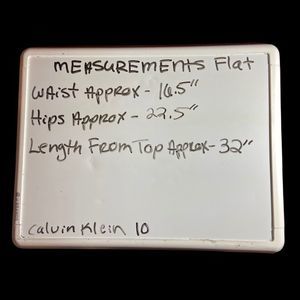 MEASUREMENTS Flat
Waist Approx - 16.5"
Hips Approx - 22.5"
Length From Top Approx - 32"
Calvin Klein 10